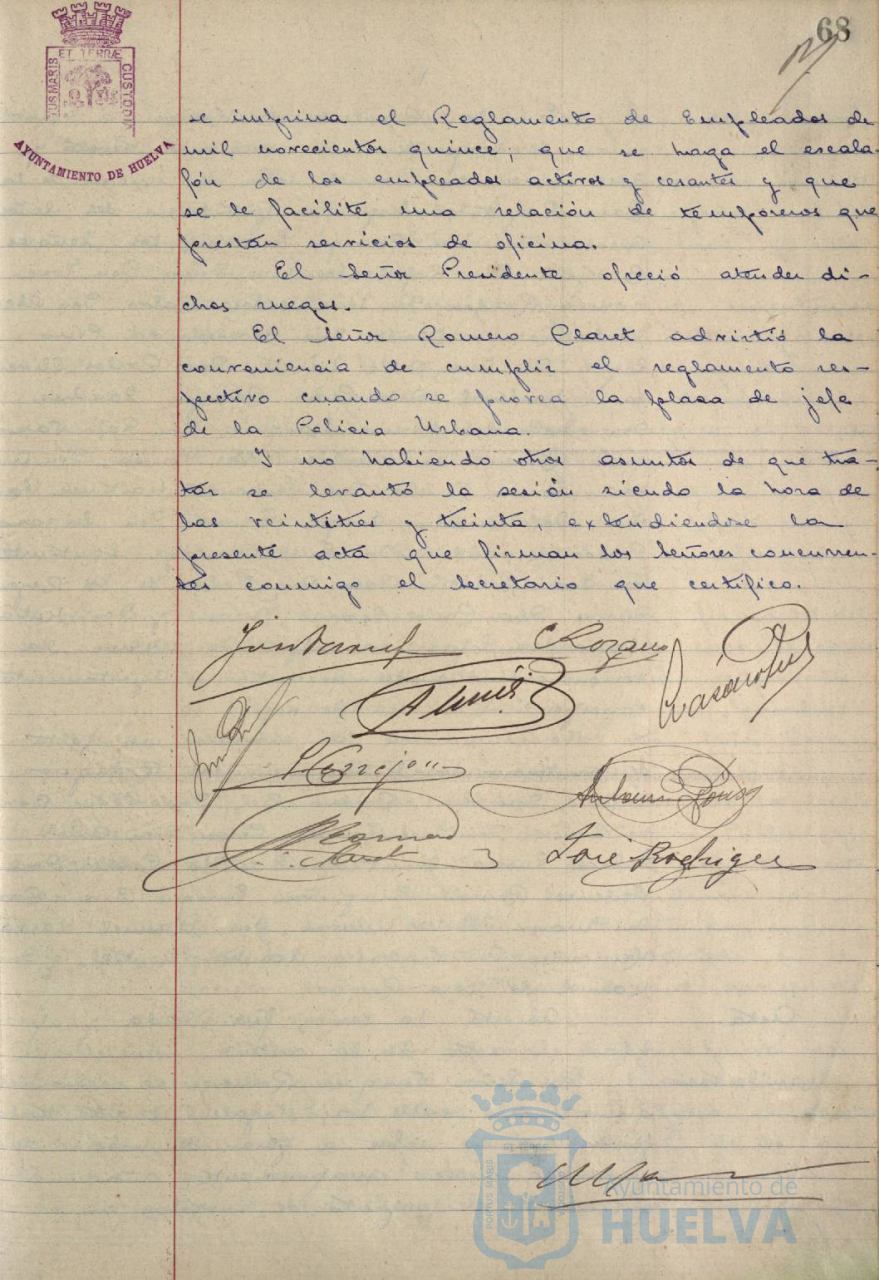 68
ET TERRÆ
CUSTODIA
AYUNTAMIENTO DE HUELVA
se imprima el Reglamento de Empleados de
mil novecientos quince; que se haga el escala-
fón de los empleados activos y cesantes y que
se le facilite una relación de temporeros que
prestan servicios de oficina.
El Señor Presidente ofreció atender di-
chos ruegos.
El Señor Romero Claret advirtió la
conveniencia de cumplir el reglamento res-
pectivo cuando se provea la plaza de jefe
de la Policía Urbana.
Y no habiendo otros asuntos de que tra-
tar se levantó la sesión siendo la hora de
las veintitres y treinta, extendiendose la
presente acta que firman los Señores concurren-
tes conmigo el Secretario que certifico.
José Rodriguez
Ayuntamiento de
HUELVA